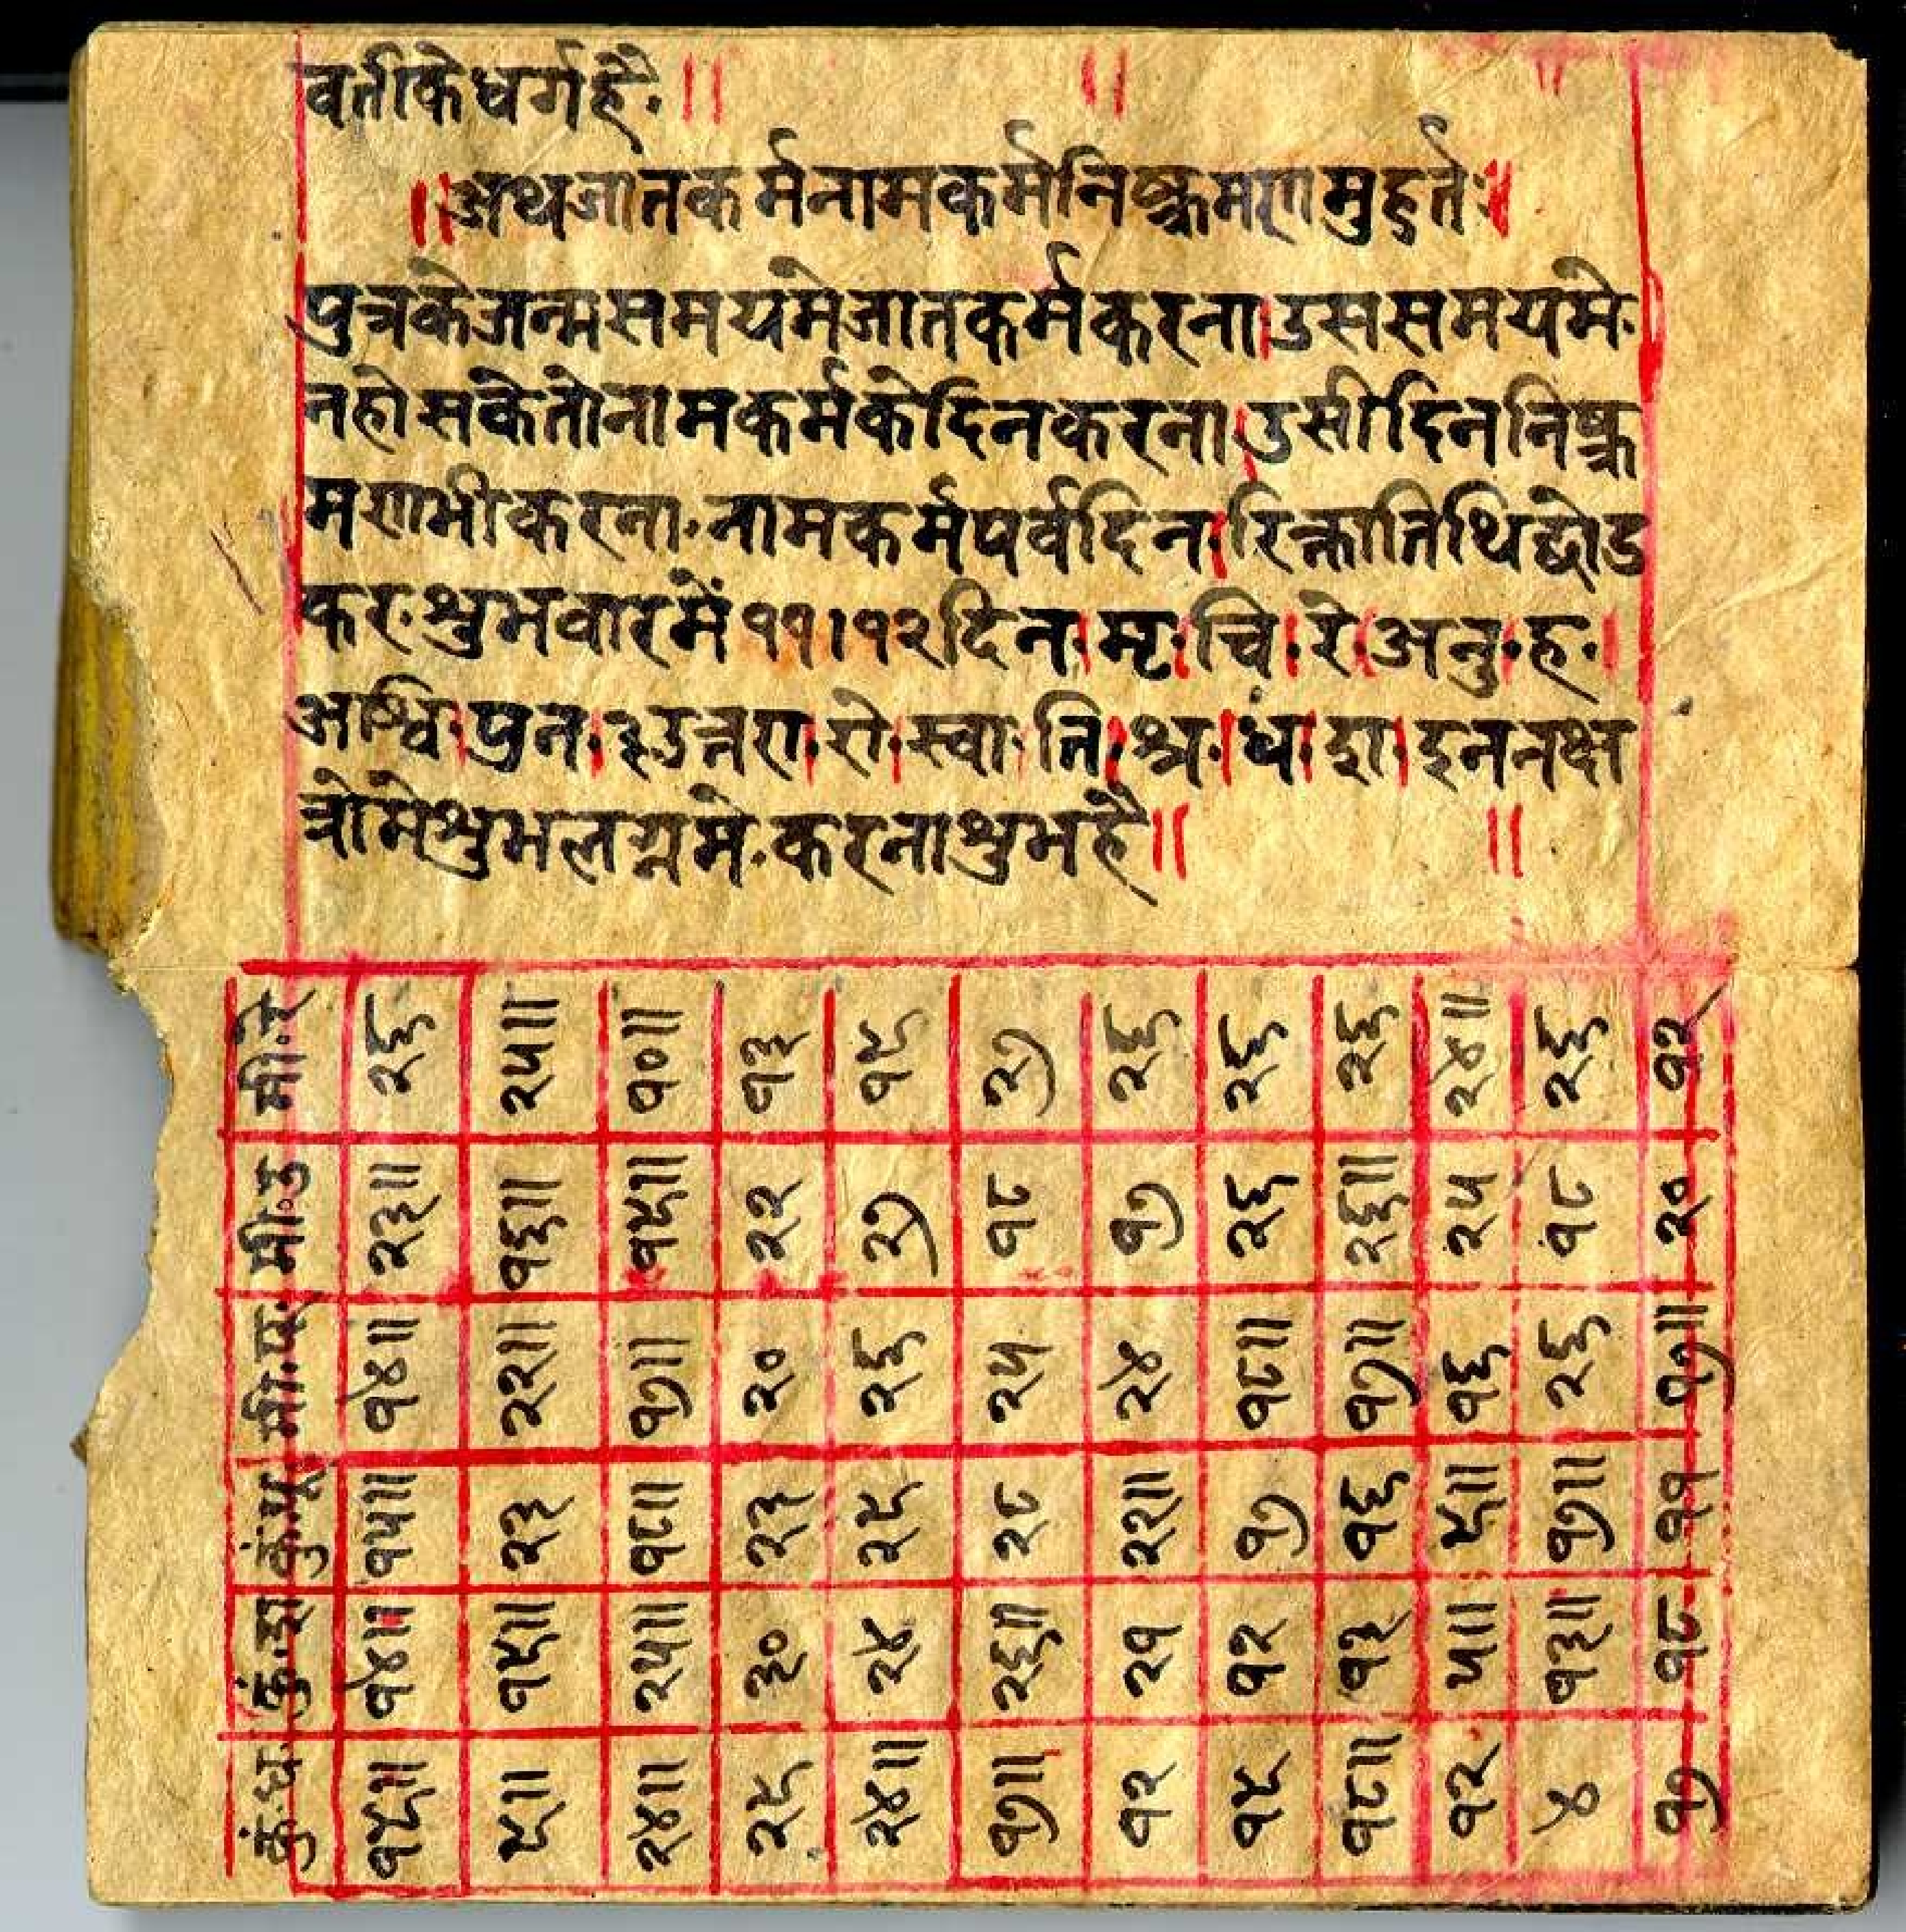 वर्तीकेधर्गहै.॥ ॥ ॥
॥अथजातकर्मनामकर्मनिष्क्रमणमुहुर्तः॥
पुत्रकेजन्मसमयमेजातकर्मकरना।उससमयमे.
नहोसकेतोनामकर्मकेदिनकरना।उसीदिननिष्क्र
मणभीकरना.नामकर्मपर्वदिन।रिक्तातिथिछोड
कर.शुभवारमें११।१२दिन।मृ।चि।रे।अनु।ह.।
अश्वि।पुन।३उत्तरा।रो।स्वा।ति।श्र।धं।श।इननक्ष
त्रोमेशुभलग्नमे.करनाशुभहै॥ ॥
कुं.ध कुं.श कुं.पू मी.पू. मी.उ मी.रे
१९॥ १४॥ १५॥ १४॥ २३॥ २६
९॥ १९॥ २३ २२॥ १६॥ २५॥
२४॥ २५॥ १८॥ १७॥ १९॥ १०॥
२९ ३० २३ २० २२ १३
२४॥ २४ २९ २६ २७ १९
१७॥ २६॥ २८ २५ १८ २७
१२ २१ २२॥ २४ १७ २६
१९ १२ १७ १८॥ २६ २६
१८॥ १३ १६ १७॥ २६॥ २६
१२ ५॥ ९॥ १६ २५ २४॥
४ १३॥ १७॥ २६ १८ २६
१७ १८ ११ १७॥ २० १२